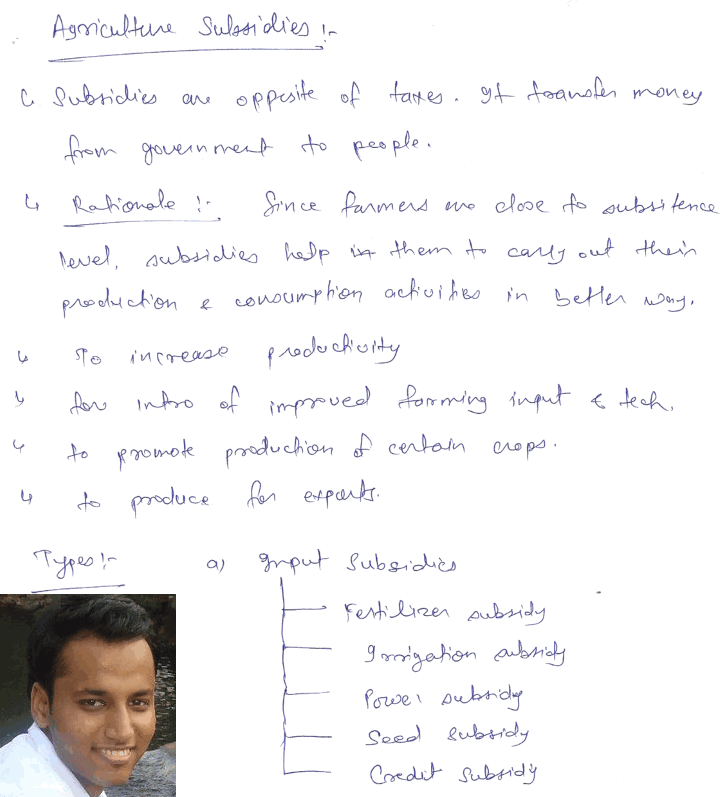 Agriculture Subsidies :-
↳ Subsidies are opposite of taxes. It transfer money
from government to people.
↳ Rationale :- Since farmers are close to subsitence
level, subsidies help in them to carry out their
production & consumption activities in better way.
↳ To increase productivity
↳ for intro of improved farming input & tech.
↳ to promote production of certain crops.
↳ to produce for exports.
Types :- a) Input Subsidies
Fertilizer subsidy
Irrigation subsidy
Power subsidy
Seed subsidy
Credit subsidy